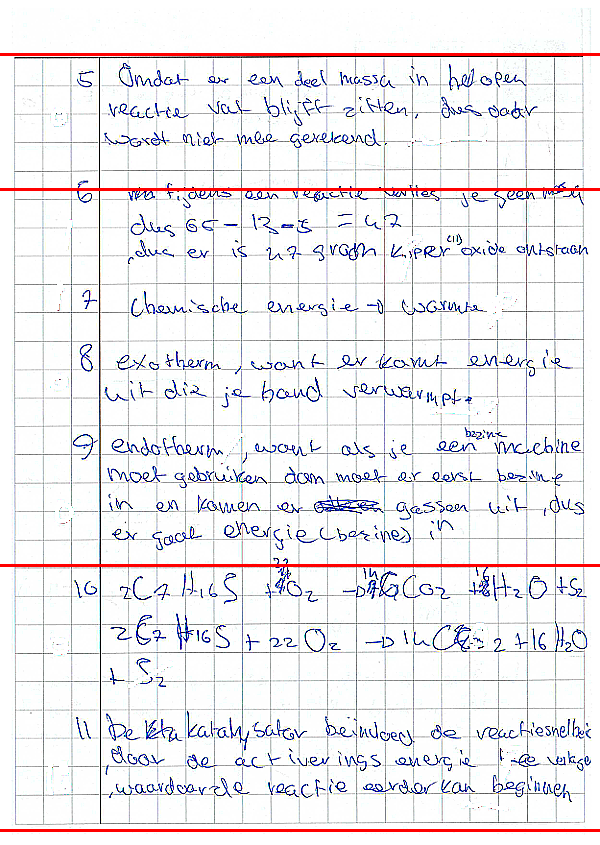 5 Omdat er een deel massa in het open
reactie vat blijft zitten, dus daar
wordt niet mee gerekend.
6 tijdens een reactie verlies je geen massa
dus 65 - 13 - 5 = 47
, dus er is 47 gram kipper (II) oxide ontstaan
7 Chemische energie → warmte
8 exotherm, want er komt energie
uit die je hand verwarmpt.
9 endotherm, want als je een bezine machine
moet gebruiken dan moet er eerst bezine
in en komen er gassen uit, dus
er gaat energie (bezine) in
10 2C7H16S + 22O2 → 14CO2 + 16H2O + S2
2C7H16S + 22O2 → 14CO2 + 16H2O
+ S2
11 De katalysator beinvloed de reactiesnelheid
, door de activerings energie te verlage
, waardoor de reactie eerder kan beginnen